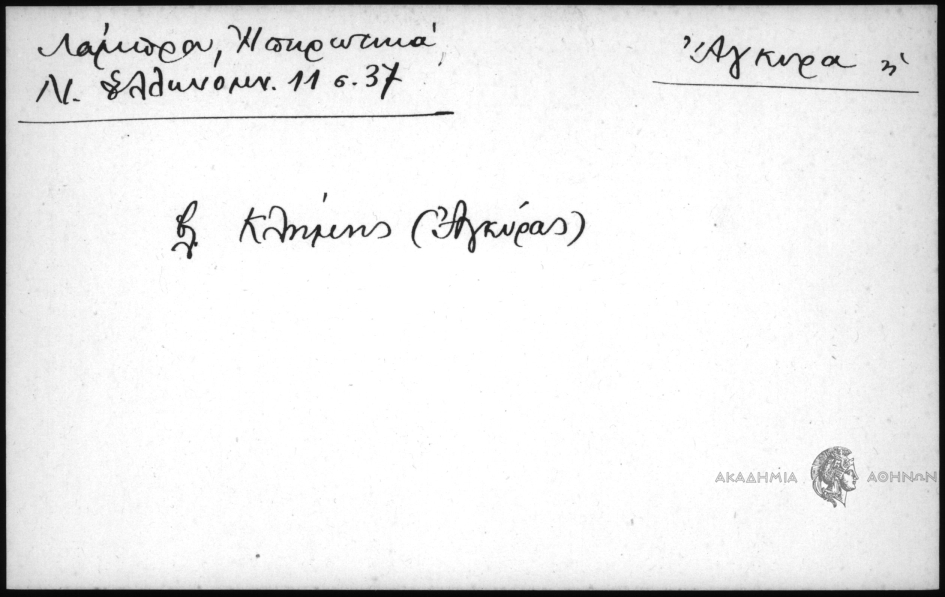 Λάμπρου, Ἠπειρωτικά,
Ν. Ἑλληνομν. 11 σ. 37
Ἄγκυρα ἡ
βλ. Κλήμης (Ἀγκύρας)
ΑΚΑΔΗΜΙΑ ΑΘΗΝΩΝ